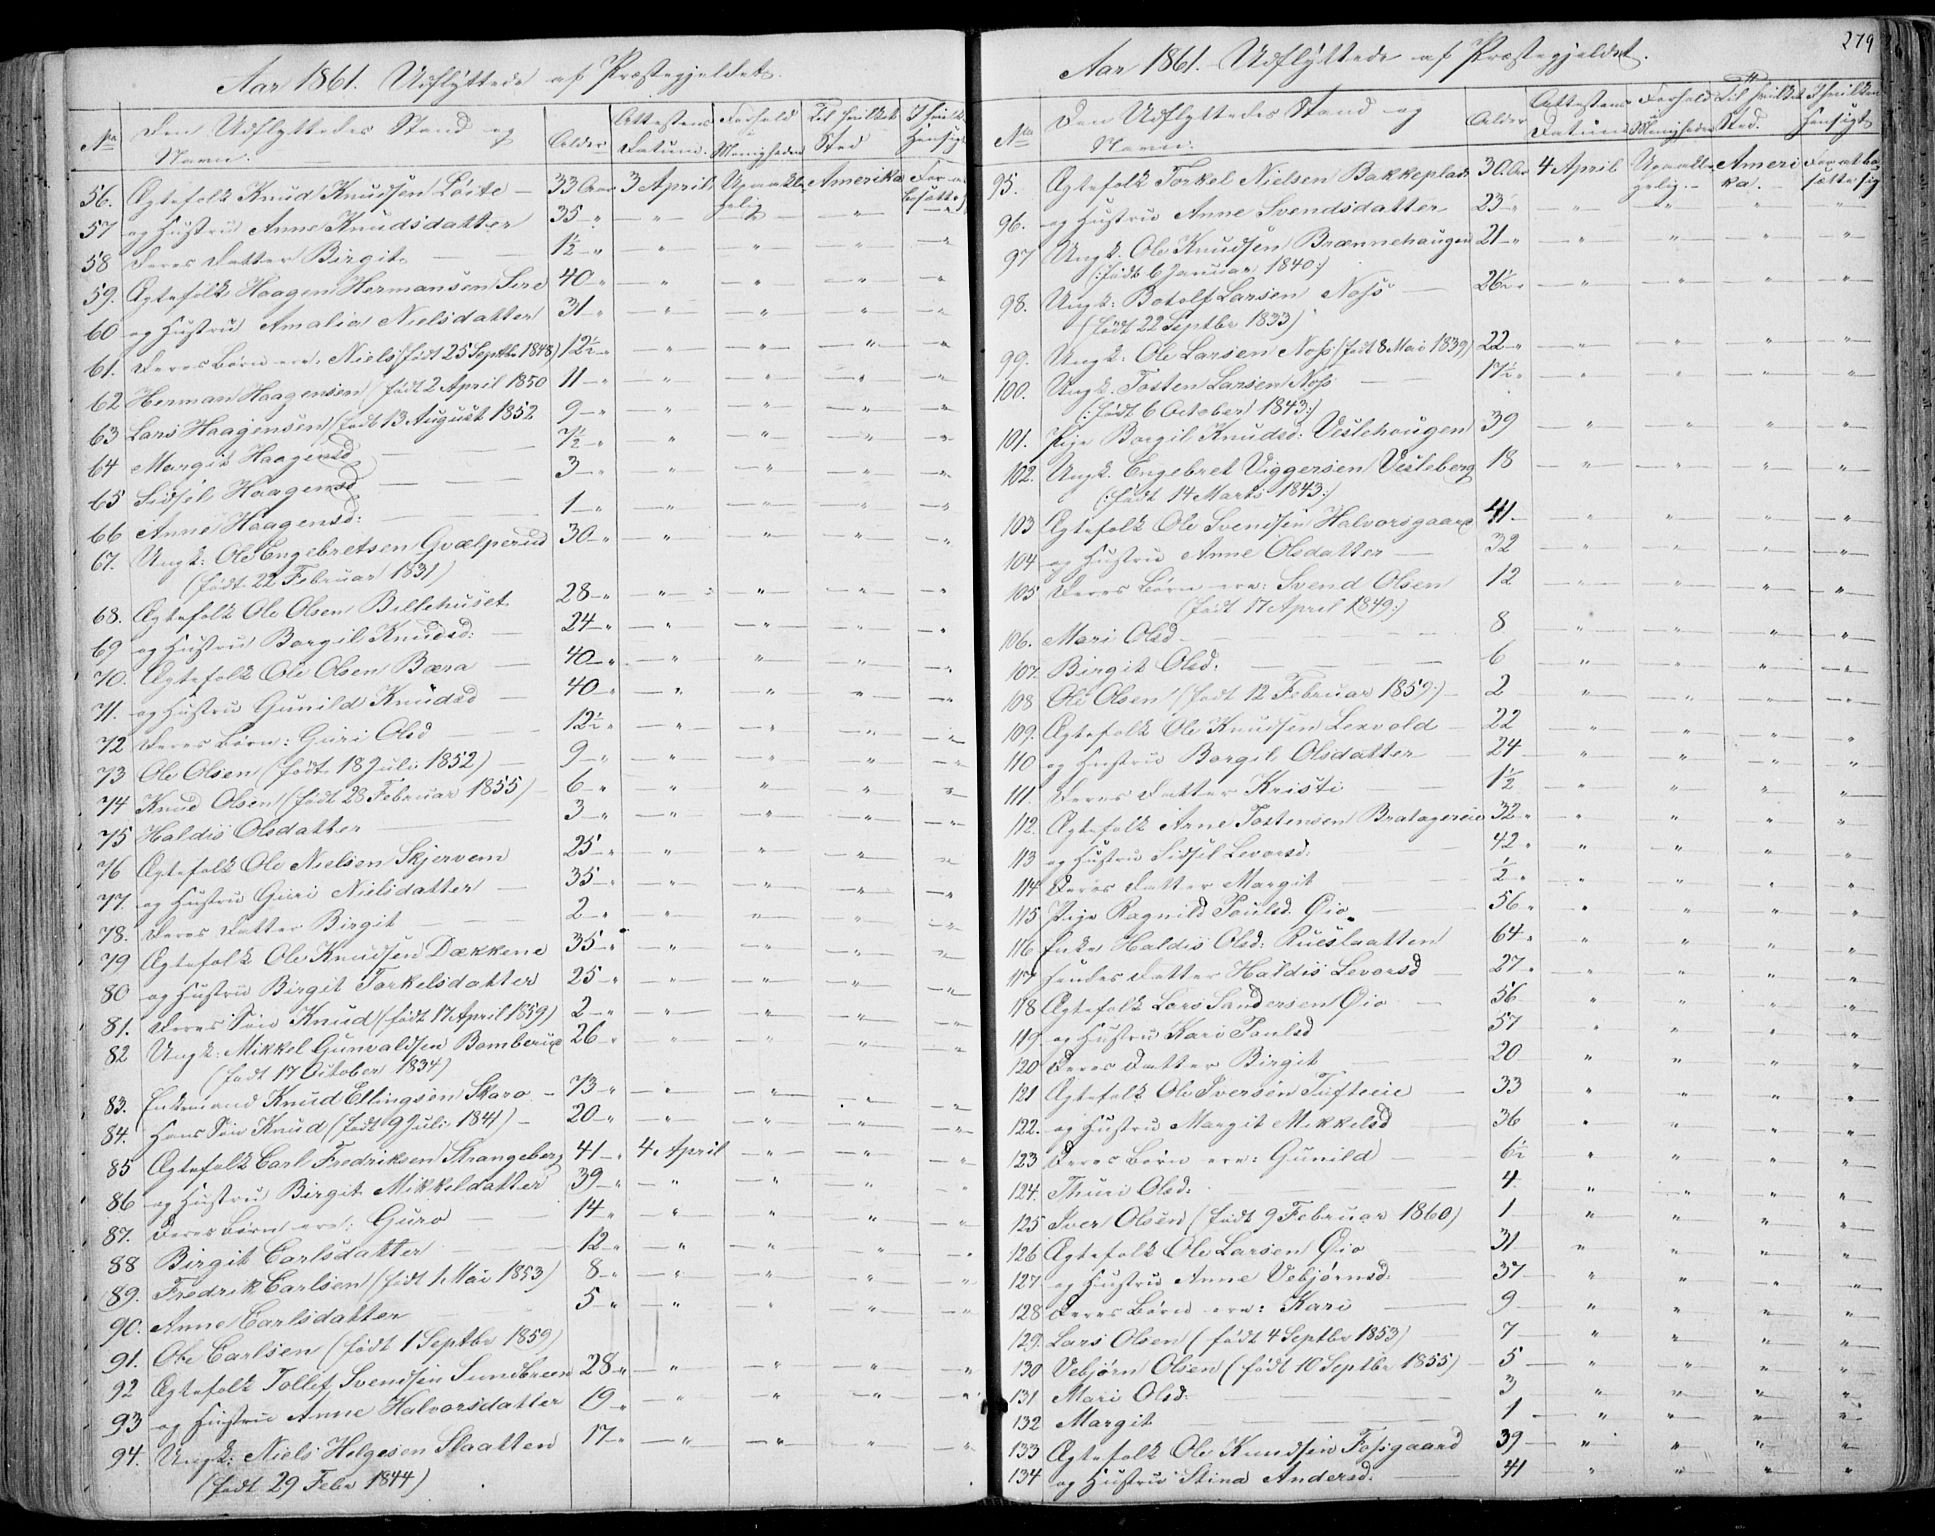 Aar 1861. Udflyttede af Præstegjeldet.
No Den Udflyttedes Stand og Navn. Alder Attestens Datum. Forhold Menigheden Til hvilket Sted
56. Ægtefolk Knud Knudsen 33 Aar 3 April Upaaklagelig Amerika
57 og Hustru Anne Knudsdatter 35 "
58 Deres Datter Birgit 1½ "
59. Ægtefolk Haagen Hermansen 40 "
60 og Hustru Amalia Nielsdatter 31 "
61. Deres Børn ere: Niels (født 25 Septbr 1848) 12½ "
62 Herman Haagensen (født 2 April 1850 11 "
63 Lars Haagensen (født 13 August 1852 9 "
64 Margit Haagensd 7½ "
65 Sidsel Haagensd 3 "
66 Anne Haagensd: 1 "
67. Ungk: Ole Engebretsen Gvælperud 30 "
(født 22 Februar 1831)
68. Ægtefolk Ole Olsen Billehuset 28 "
69 og Hustru Borgil Knudsd: 24 "
70. Ægtefolk Ole Olsen Bæra 40 "
71. og Hustru Gunild Knudsd 40 "
72 Deres Børn: Guri Olsd 12½ "
73 Ole Olsen (født 18 Juli 1852) 9 "
74 Knud Olsen (født 28 Februar 1855) 6 "
75 Haldis Olsdatter 3 "
76 Ægtefolk Ole Nielsen Skjervem 25 "
77. og Hustru Guri Nielsdatter 35 "
78. Deres Datter Birgit 2 "
79 Ægtefolk Ole Knudsen Dækkene 35 "
80 og Hustru Birgit Torkelsdatter 25 "
81. Deres Søn Knud (født 17 April 1859) 2 "
82 Ungk: Mikkel Gunvaldsen 26 "
(født 17 October 1834)
83. Enkemand Knud Ellingsen Skaro 73 "
84. Hans Søn Knud (født 9 Juli 1841) 20 "
85 Ægtefolk Carl Fredriksen Strangeberg 41 " 4 April
86 og Hustru Birgit Mikkelsdatter 39 "
87. Deres Børn ere: Guro 14 "
88 Birgit Carlsdatter 12 "
89. Fredrik Carlsen (født 1 Mai 1853) 8 "
90. Anne Carlsdatter 5 "
91. Ole Carlsen (født 1 Septbr 1859)
92 Ægtefolk Tollef Svendsen Sundbreen 28 "
93 og Hustru Anne Halvorsdatter 19 "
94. Ungk: Niels Helgesen Slaatten 17 "
(født 29 Febr 1844)
279
Aar 1861. Udflyttede af Præstegjeldet.
No Den Udflyttedes Stand og Navn. Alder Attestens Datum Forhold Menigheden Til hvilket Sted. I hvilken Hensigt
95. Ægtefolk Torkel Nielsen Bakkeplads 30 Aar 4 April Upaaklagelig. Amerika. For at bosætte sig
96. og Hustru Anne Svendsdatter 23 "
97 Ungk. Ole Knudsen Brænnehaugen 21 "
(:født 6 Januar 1840:)
98. Ungk: Botolf Larsen Noss 26½ "
(født 22 Septbr 1833)
99. Ungk: Ole Larsen Noss (født 8 Mai 1839) 22 "
100. Ungk. Tosten Larsen Noss 17½ "
(:født 6 October 1843:)
101. Pige Borgil Knudsd: Veslehougen 39
102. Ungk. Engebret Viggersen Vesleberg 18
(:født 14 Marts 1843:)
103 Ægtefolk Ole Svendsen Halvorsgaard 41
104 og Hustru Anne Olsdatter 32
105 Deres Børn ere: Svend Olsen 12
(født 17 April 1849:)
106. Mari Olsd 8
107. Birgit Olsd. 6
108 Ole Olsen (født 12 Februar 1859:) 2
109. Ægtefolk Ole Knudsen Lexvold 22
110 og Hustru Borgil Olsdatter 24
111. Deres Datter Kristi 1½
112. Ægtefolk Arne Tostensen Bratagereie 32 "
113 og Hustru Sidsel Levorsd: 42 "
114 Deres Datter Margit ½ "
115 Pige Ragnild Poulsd. Øio 56 "
116 Enke Haldis Olsd: Rueslaatten 64 "
117 Hendes Datter Haldis Levorsd 27 "
118 Ægtefolk Lars Sandersen Øio 56
119. og Hustru Kari Poulsd 57
120 Deres Datter Birgit 20
121 Ægtefolk Ole Iversen Tufteeie 33
122. og Hustru Margit Mikkelsd 36
123 Deres Børn ere: Gunild 6½
124. Thuri Olsd: 4
125 Iver Olsen (født 9 Februar 1860) 1
126 Ægtefolk Ole Larsen Øio 31
127 og Hustru Anne Vebjørnsd: 37
128 Deres Børn ere: Kari 9
129. Lars Olsen (født 4 Septbr 1853) 7
130 Vebjørn Olsen (født 10 Septbr 1855) 5
131 Mari Olsd: 3
132 Margit 1
133 Ægtefolk Ole Knudsen Fossgaard 39
134 og Hustru Stina Andersd: 41